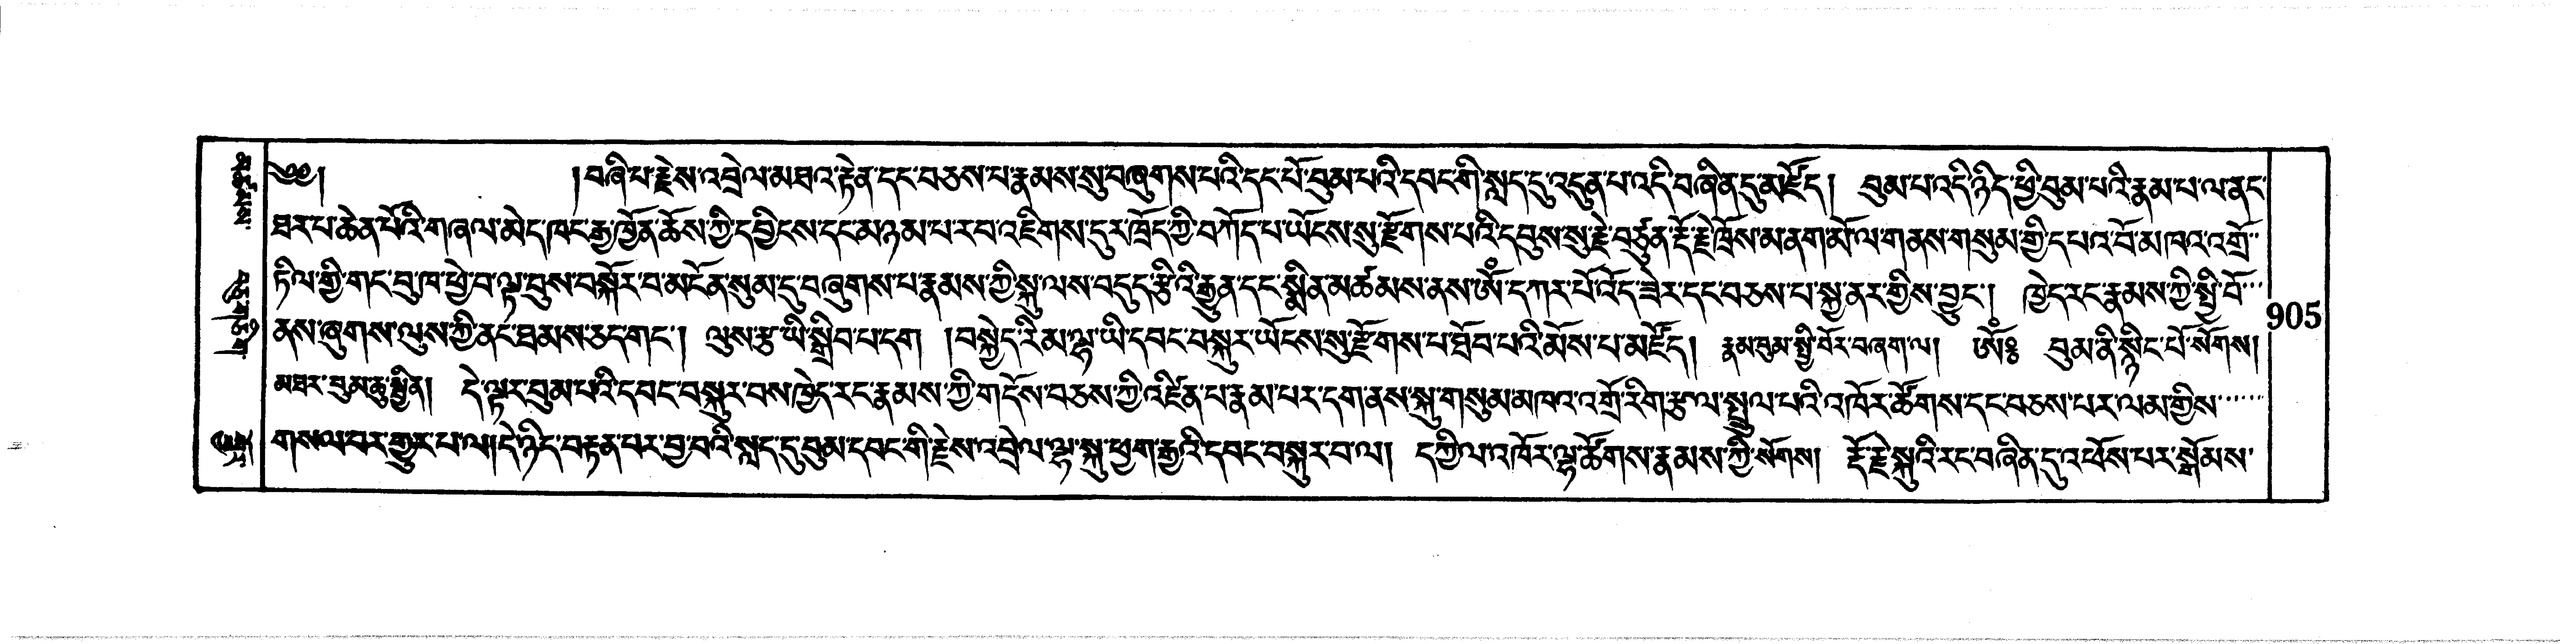 ༄༅། །བཞི་པ་རྗེས་འབྲེལ་མཐའ་རྟེན་དང་བཅས་པ་རྣམས་སུ་བཞུགས་པའི་དང་པོ་བུམ་པའི་དབང་གི་སླད་དུ་འདུན་པ་འདི་བཞིན་དུ་མཛོད། བུམ་པ་འདི་ཉིད་ཕྱི་བུམ་པའི་རྣམ་པ་ལ་ནང་
ཐར་པ་ཆེན་པོའི་གཞལ་མེད་ཁང་རྒྱ་ཁྱོན་ཆོས་ཀྱི་དབྱིངས་དང་མཉམ་པ་རབ་འཇིགས་དུར་ཁྲོད་ཀྱི་བཀོད་པ་ཡོངས་སུ་རྫོགས་པའི་དབུས་སུ་རྗེ་བཙུན་རྡོ་རྗེ་ཁྲོས་མ་ནག་མོ་ལ་གནས་གསུམ་གྱི་དཔའ་བོ་མཁའ་འགྲོ་
ཏིལ་གྱི་གང་བུ་ཁ་ཕྱེ་བ་ལྟ་བུས་བསྐོར་བ་མངོན་སུམ་དུ་བཞུགས་པ་རྣམས་ཀྱི་སྐུ་ལས་བདུད་རྩིའི་རྒྱུན་དང་སྨིན་མཚམས་ནས་ཨོཾ་དཀར་པོ་འོད་ཟེར་དང་བཅས་པ་སྐྱ་ནར་གྱིས་བྱུང་། ཁྱེད་རང་རྣམས་ཀྱི་སྤྱི་བོ་
ནས་ཞུགས་ལུས་ཀྱི་ནང་ཐམས་ཅད་གང་། ལུས་རྩ་ཡི་སྒྲིབ་པ་དག །བསྐྱེད་རིམ་ལྷ་ཡི་དབང་བསྐུར་ཡོངས་སུ་རྫོགས་པ་ཐོབ་པའི་མོས་པ་མཛོད། རྣམ་བུམ་སྤྱི་བོར་བཞག་ལ། ཨོཾ༔ བུམ་ནི་སྙིང་པོ་སོགས།
མཐར་བུམ་ཆུ་སྦྱིན། དེ་ལྟར་བུམ་པའི་དབང་བསྐུར་བས་ཁྱེད་རང་རྣམས་ཀྱི་གདོས་བཅས་ཀྱི་འཛིན་པ་རྣམ་པར་དག་ནས་སྐུ་གསུམ་མཁའ་འགྲོ་རིག་རྩལ་སྤྲུལ་པའི་འཁོར་ཚོགས་དང་བཅས་པར་ལམ་གྱིས་
གསལ་བར་གྱུར་པ་ལ། དེ་ཉིད་བརྟན་པར་བྱ་བའི་སླད་དུ་བུམ་དབང་གི་རྗེས་འབྲེལ་ལྷ་སྐུ་ཕྱག་རྒྱའི་དབང་བསྐུར་བ་ལ། དཀྱིལ་འཁོར་ལྷ་ཚོགས་རྣམས་ཀྱི་སོགས། རྡོ་རྗེ་སྐུའི་རང་བཞིན་དུ་འཕོས་པར་སྒོམས་
905